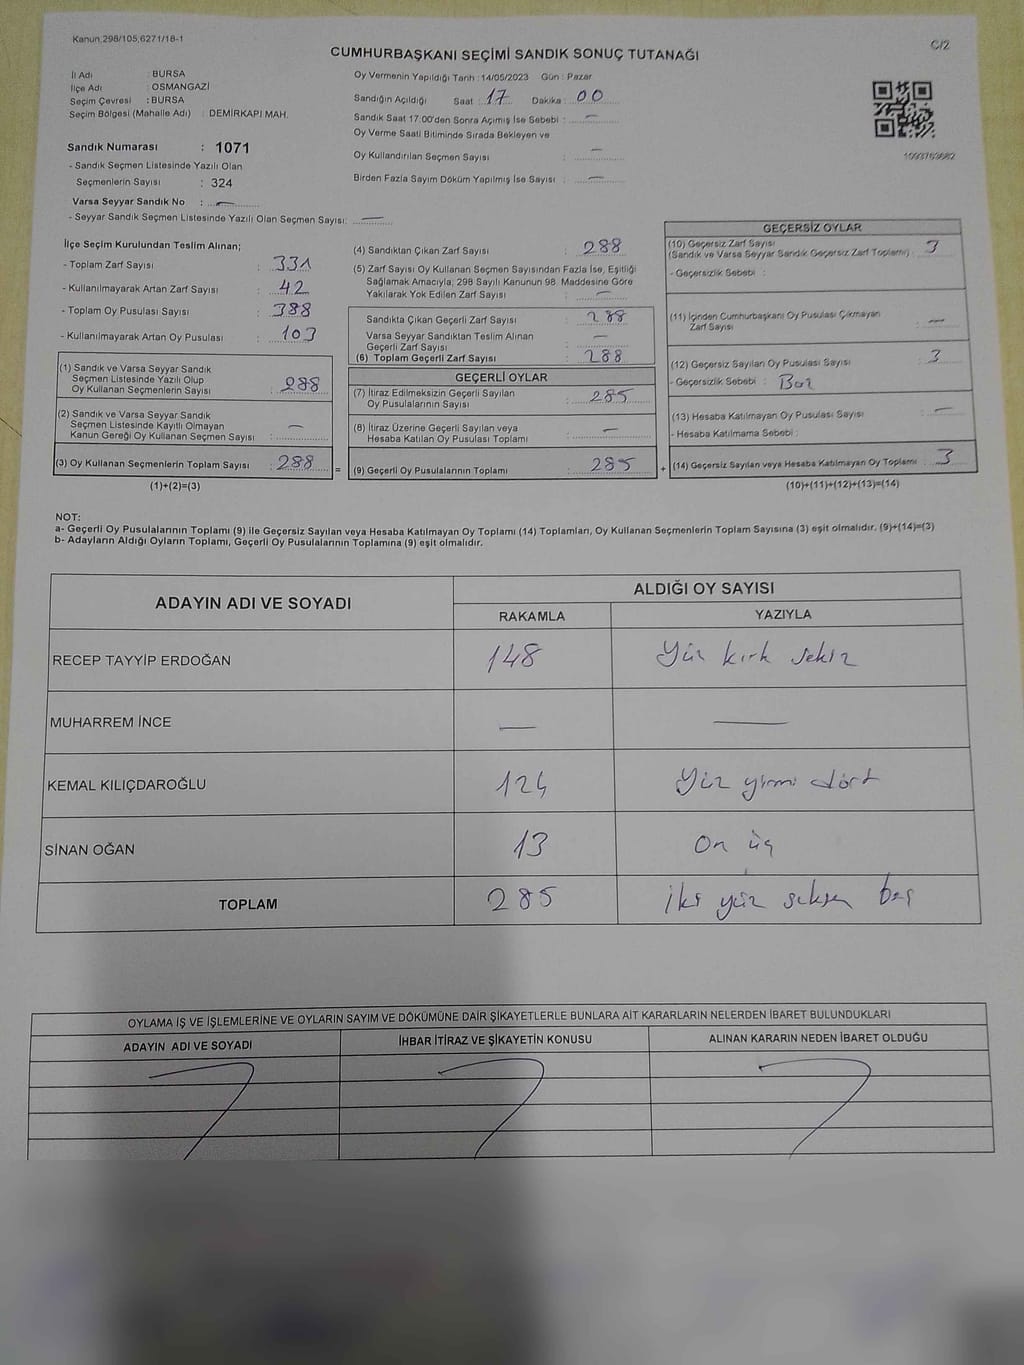 Kanun:298/105,6271/18-1
C/2
CUMHURBAŞKANI SEÇİMİ SANDIK SONUÇ TUTANAĞI
İl Adı : BURSA
İlçe Adı : OSMANGAZİ
Seçim Çevresi : BURSA
Seçim Bölgesi (Mahalle Adı) : DEMİRKAPI MAH.
Sandık Numarası : 1071
- Sandık Seçmen Listesinde Yazılı Olan
Seçmenlerin Sayısı : 324
Varsa Seyyar Sandık No : —
- Seyyar Sandık Seçmen Listesinde Yazılı Olan Seçmen Sayısı: —
Oy Vermenin Yapıldığı Tarih : 14/05/2023 Gün : Pazar
Sandığın Açıldığı Saat : 17 Dakika : 00
Sandık Saat 17:00'den Sonra Açılmış İse Sebebi : —
Oy Verme Saati Bitiminde Sırada Bekleyen ve
Oy Kullandırılan Seçmen Sayısı : —
Birden Fazla Sayım Döküm Yapılmış İse Sayısı : —
1093763682
İlçe Seçim Kurulundan Teslim Alınan;
- Toplam Zarf Sayısı : 331
- Kullanılmayarak Artan Zarf Sayısı : 42
- Toplam Oy Pusulası Sayısı : 388
- Kullanılmayarak Artan Oy Pusulası : 103
(1) Sandık ve Varsa Seyyar Sandık
Seçmen Listesinde Yazılı Olup
Oy Kullanan Seçmenlerin Sayısı : 288
(2) Sandık ve Varsa Seyyar Sandık
Seçmen Listesinde Kayıtlı Olmayan
Kanun Gereği Oy Kullanan Seçmen Sayısı : —
(3) Oy Kullanan Seçmenlerin Toplam Sayısı : 288 =
(1)+(2)=(3)
(4) Sandıktan Çıkan Zarf Sayısı : 288
(5) Zarf Sayısı Oy Kullanan Seçmen Sayısından Fazla İse, Eşitliği
Sağlamak Amacıyla; 298 Sayılı Kanunun 98. Maddesine Göre
Yakılarak Yok Edilen Zarf Sayısı : —
Sandıkta Çıkan Geçerli Zarf Sayısı : 288
Varsa Seyyar Sandıktan Teslim Alınan
Geçerli Zarf Sayısı : —
(6) Toplam Geçerli Zarf Sayısı : 288
GEÇERLİ OYLAR
(7) İtiraz Edilmeksizin Geçerli Sayılan
Oy Pusulalarının Sayısı : 285
(8) İtiraz Üzerine Geçerli Sayılan veya
Hesaba Katılan Oy Pusulası Toplamı : —
(9) Geçerli Oy Pusulalarının Toplamı : 285 +
GEÇERSİZ OYLAR
(10) Geçersiz Zarf Sayısı
(Sandık ve Varsa Seyyar Sandık Geçersiz Zarf Toplamı) : 3
- Geçersizlik Sebebi :
(11) İçinden Cumhurbaşkanı Oy Pusulası Çıkmayan
Zarf Sayısı : —
(12) Geçersiz Sayılan Oy Pusulası Sayısı : 3
- Geçersizlik Sebebi :
(13) Hesaba Katılmayan Oy Pusulası Sayısı : —
- Hesaba Katılmama Sebebi :
(14) Geçersiz Sayılan veya Hesaba Katılmayan Oy Toplamı : 3
(10)+(11)+(12)+(13)=(14)
NOT:
a- Geçerli Oy Pusulalarının Toplamı (9) ile Geçersiz Sayılan veya Hesaba Katılmayan Oy Toplamı (14) Toplamları, Oy Kullanan Seçmenlerin Toplam Sayısına (3) eşit olmalıdır. (9)+(14)=(3)
b- Adayların Aldığı Oyların Toplamı, Geçerli Oy Pusulalarının Toplamına (9) eşit olmalıdır.
ADAYIN ADI VE SOYADI
ALDIĞI OY SAYISI
RAKAMLA YAZIYLA
RECEP TAYYİP ERDOĞAN 148 Yüz kırk sekiz
MUHARREM İNCE — —
KEMAL KILIÇDAROĞLU 124 Yüz yirmi dört
SİNAN OĞAN 13 On üç
TOPLAM 285 iki yüz seksen beş
OYLAMA İŞ VE İŞLEMLERİNE VE OYLARIN SAYIM VE DÖKÜMÜNE DAİR ŞİKAYETLERLE BUNLARA AİT KARARLARIN NELERDEN İBARET BULUNDUKLARI
ADAYIN ADI VE SOYADI İHBAR İTİRAZ VE ŞİKAYETİN KONUSU ALINAN KARARIN NEDEN İBARET OLDUĞU